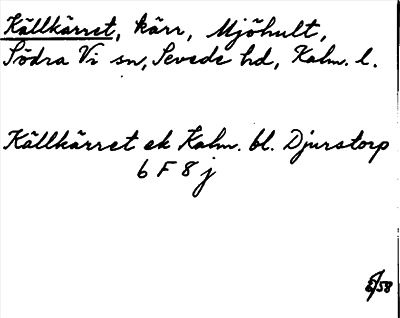 Källkärret, kärr, Mjöhult,
Södra Vi sn, Sevede hd, Kalm. l.
Källkärret ek Kalm. bl. Djurstorp
6 F 8 j